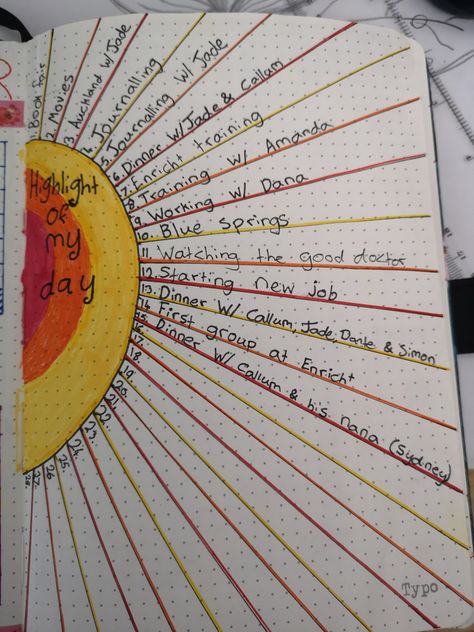 Highlight
of
my
day
book fair
2. Movies
Auckland w/Jade
4. Journalling
5. Journalling w/ Jade
6. Dinner w/Jade & Callum
7. Enrich training
8. Training w/ Amanda
9. Working w/ Dana
10. Blue Springs
11. Watching the good doctor
12. Starting new job
13. Dinner w/ Callum, Jade, Dante & Simon
14. First group at Enrich+
15. Dinner w/ Callum & his nana (Sydney)
16.
17.
18.
19.
20.
21.
22.
23.
24.
25.
26.
27.
28.
Typo